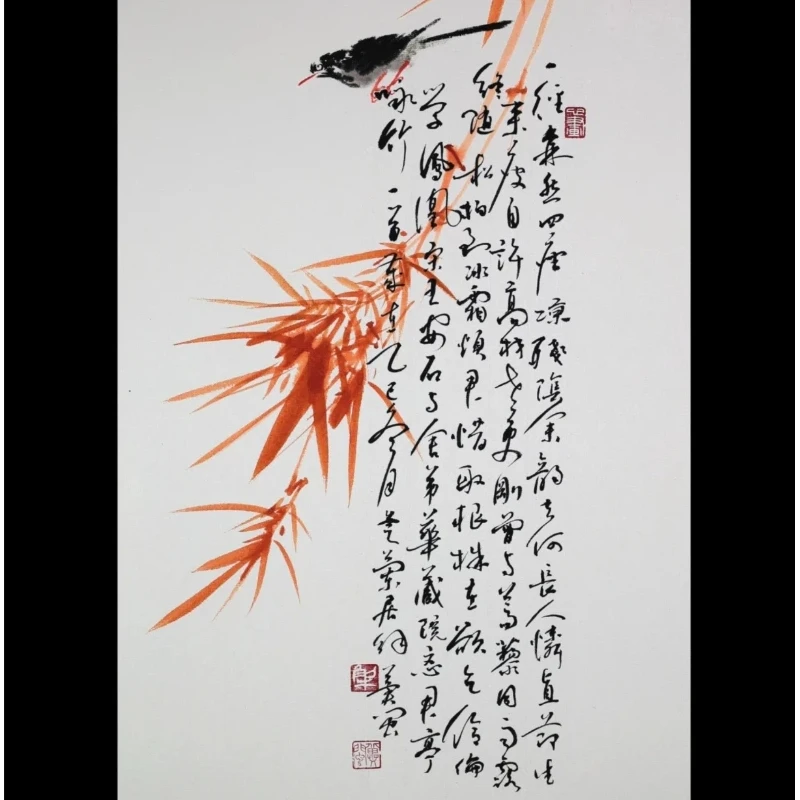 一徑森然四座涼殘陰余韻去何長人憐直節生
來瘦自許高材老更剛曾与蒿藜同雨露
終隨松柏到冰霜煩君惜取根株在欲乞伶倫
学鳳凰宋王安石与舍弟華藏院忞君亭
咏竹一首歲在乙巳冬月芝蘭居